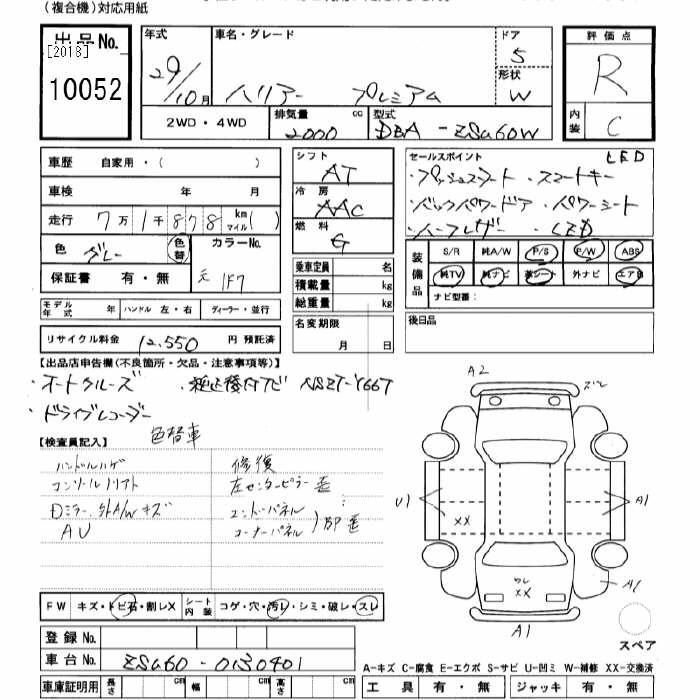 (複合機)対応用紙
出品No.
[2018]
10052
年式
29/10月
車名・グレード
ハリアー プレミアム
ドア
5
形状
W
評価点
R
内装
C
2WD・4WD
排気量
2000
cc
型式
DBA-ZSU60W
車歴 自家用・( )
車検 年 月
走行 7万1千878km マイル( )
色 グレー 色替 カラーNo.
元 1F7
保証書 有・無
シフト
AT
冷房
AAC
燃料
G
乗車定員 名
積載量 kg
総重量 kg
名変期限
月 日
セールスポイント LED
・プッシュスタート ・スマートキー
・バックパワードア ・パワーシート
・ハーフレザー ・LED
装備品
S/R 純A/W P/S P/W ABS
純TV 純ナビ 革シート 外ナビ エアB
ナビ型番:
モデル年式 年 ハンドル 左・右 ディーラー・並行
リサイクル料金 12,550 円 預託済
後日品
【出品店申告欄(不良箇所・欠品・注意事項等)】
・オートクルーズ ・純正後付ナビ NSZT-Y66T
・ドライブレコーダー
【検査員記入】
色替車
ハンドルハゲ
コンソールソリスト
Dミラー、外A/Wキズ
AU
修復
左センターピラー歪
エンドパネル
コーナーパネル
)部歪
A2
U1
XX
A1
ワレ
XX
A1
A1
スペア
FW キズ・トビ石・割レX シート内装 コゲ・穴・汚レ・シミ・破レ・スレ
登録No.
車台No. ZSU60-0130401
車庫証明用 長さ cm 幅 cm 高さ cm
A-キズ C-腐食 E-エクボ S-サビ U-凹ミ W-補修 XX-交換済
工具 有・無 ジャッキ 有・無